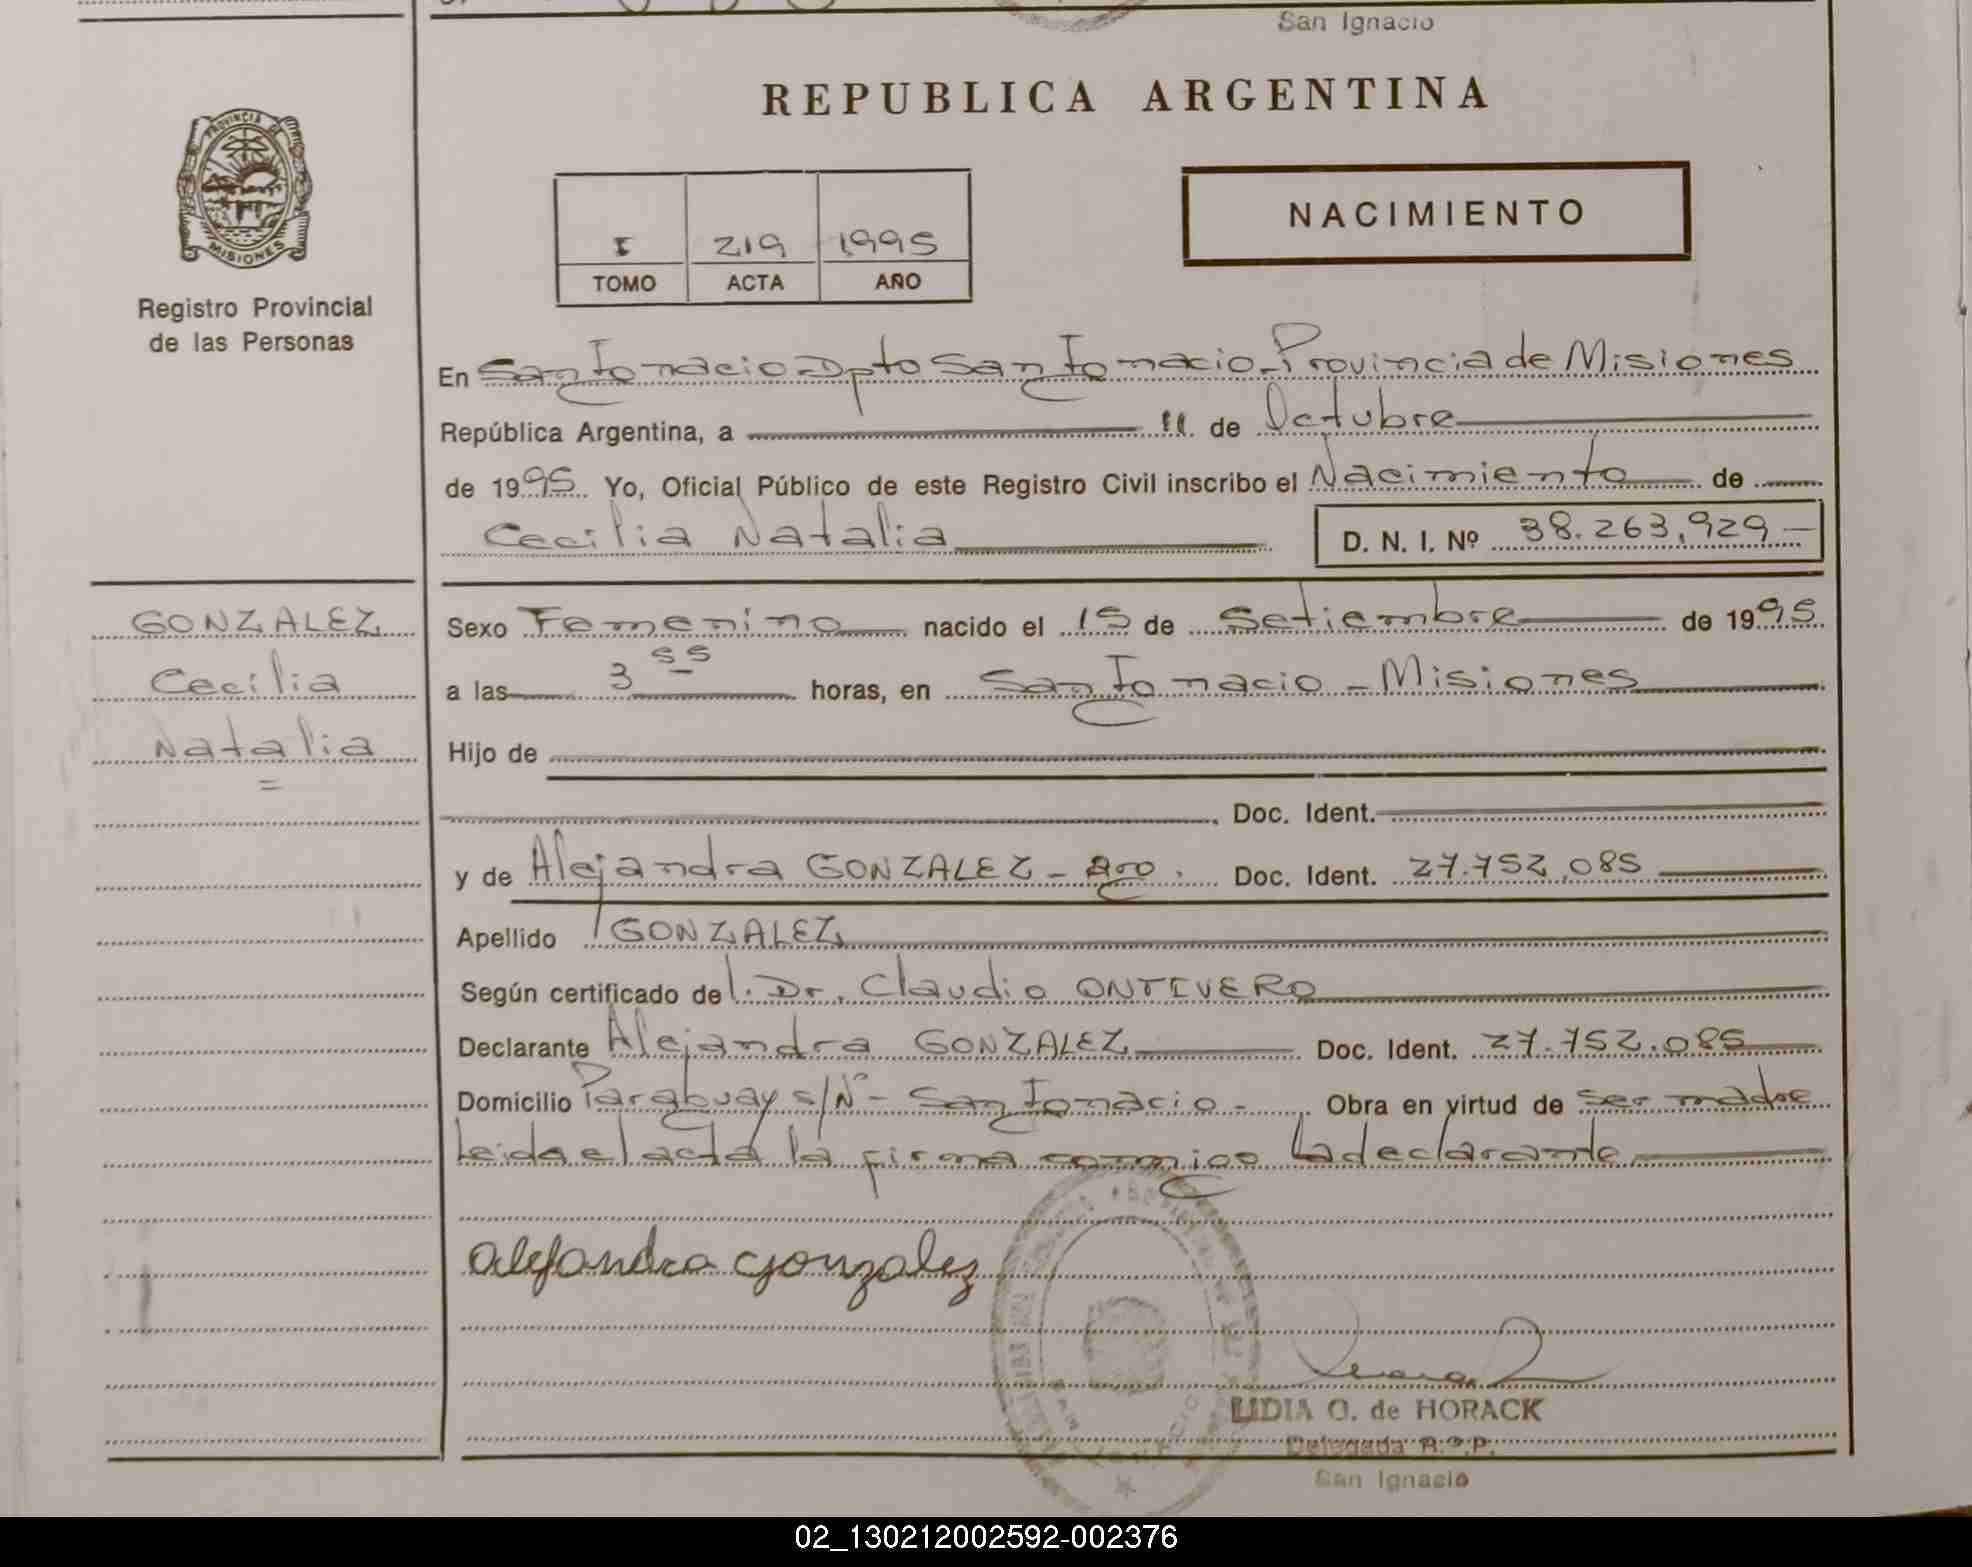 San Ignacio
REPUBLICA ARGENTINA
PROVINCIA DE
MISIONES
Registro Provincial
de las Personas
I 219 1995
TOMO ACTA AÑO
NACIMIENTO
En San Ignacio - Dpto San Ignacio - Provincia de Misiones
República Argentina, a 11 de Octubre
de 1995 Yo, Oficial Público de este Registro Civil inscribo el Nacimiento de
Cecilia Natalia D. N. I. Nº 38.263.929 -
GONZALEZ
Cecilia
Natalia
=
Sexo Femenino nacido el 15 de Setiembre de 1995
a las 3 55 horas, en San Ignacio - Misiones
Hijo de
Doc. Ident.
y de Alejandra GONZALEZ - Arg. Doc. Ident. 27.752.085
Apellido GONZALEZ
Según certificado del Dr. Claudio ONTIVERO
Declarante Alejandra GONZALEZ Doc. Ident. 27.752.085
Domicilio Paraguay s/Nº - San Ignacio - Obra en virtud de ser madre
Leida el acta la firma conmigo la declarante
Alejandra Gonzalez
LIDIA O. de HORACK
Delegada R.P.P.
San Ignacio
02_130212002592-002376